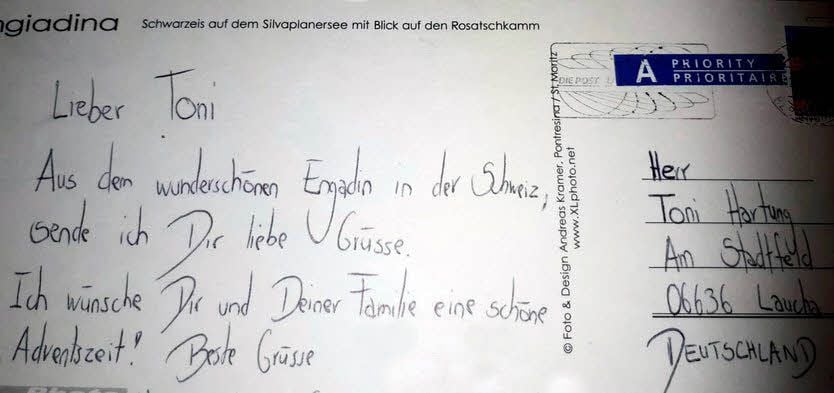 ngiadina Schwarzeis auf dem Silvaplanersee mit Blick auf den Rosatschkamm
Lieber Toni
Aus dem wunderschönen Engadin in der Schweiz,
sende ich Dir liebe Grüsse.
Ich wünsche Dir und Deiner Familie eine schöne
Adventszeit! Beste Grüsse
© Foto & Design Andreas Kramer, Pontresina / St. Moritz
www.XLphoto.net
DIE POST
A PRIORITY
PRIORITAIRE
Herr
Toni Hartung
Am Stadtfeld
06636 Laucha
DEUTSCHLAND